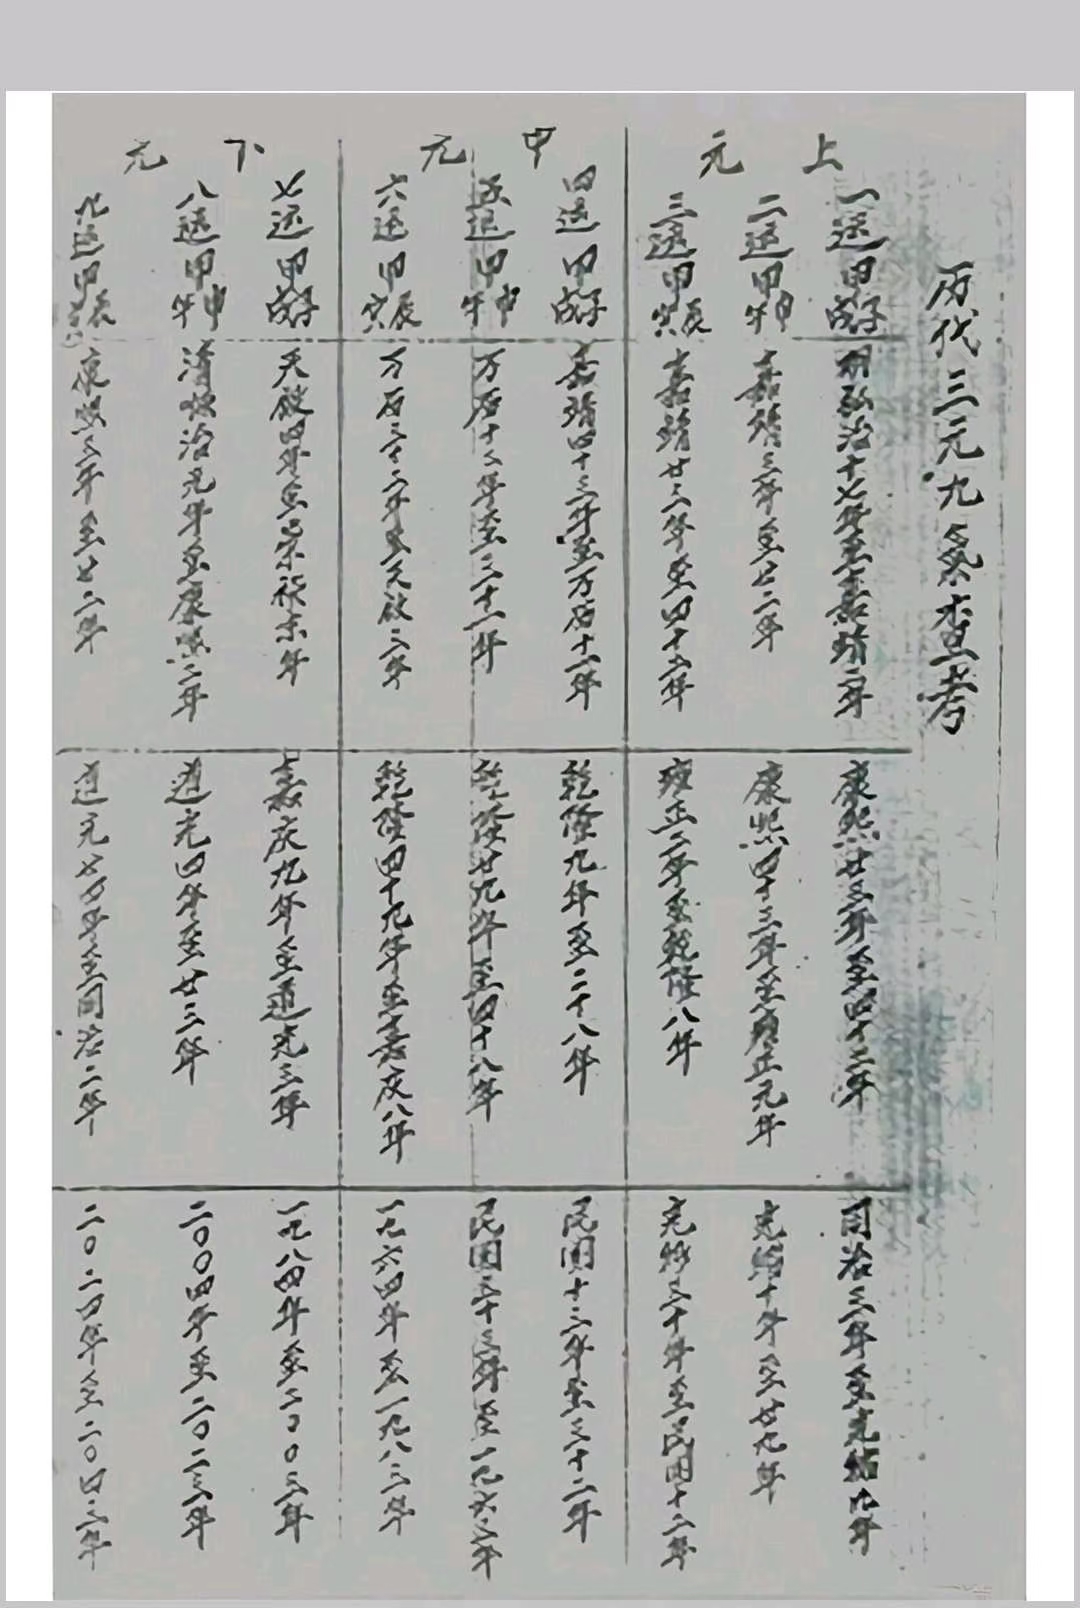 历代三元九氣查考
上元
一运甲子戌 明弘治十七年至嘉靖二年 康熙廿三年至四十二年 同治三年至光绪九年
二运甲申午 嘉靖三年至廿二年 康熙四十三年至雍正元年 光绪十年至廿九年
三运甲辰寅 嘉靖廿三年至四十二年 雍正二年至乾隆八年 光绪三十年至民国十二年
中元
四运甲子戌 嘉靖四十三年至万历十一年 乾隆九年至二十八年 民国十三年至三十二年
五运甲申午 万历十二年至三十一年 乾隆廿九年至四十八年 民国三十三年至一九六三年
六运甲辰寅 万历三十二年至天启三年 乾隆四十九年至嘉庆八年 一九六四年至一九八三年
下元
七运甲子戌 天啟四年至崇祯末年 嘉庆九年至道光三年 一九八四年至二〇〇三年
八运甲申午 清顺治元年至康熙二年 道光四年至廿三年 二〇〇四年至二〇二三年
九运甲辰寅 康熙三年至廿二年 道光廿四年至同治二年 二〇二四年至二〇四三年